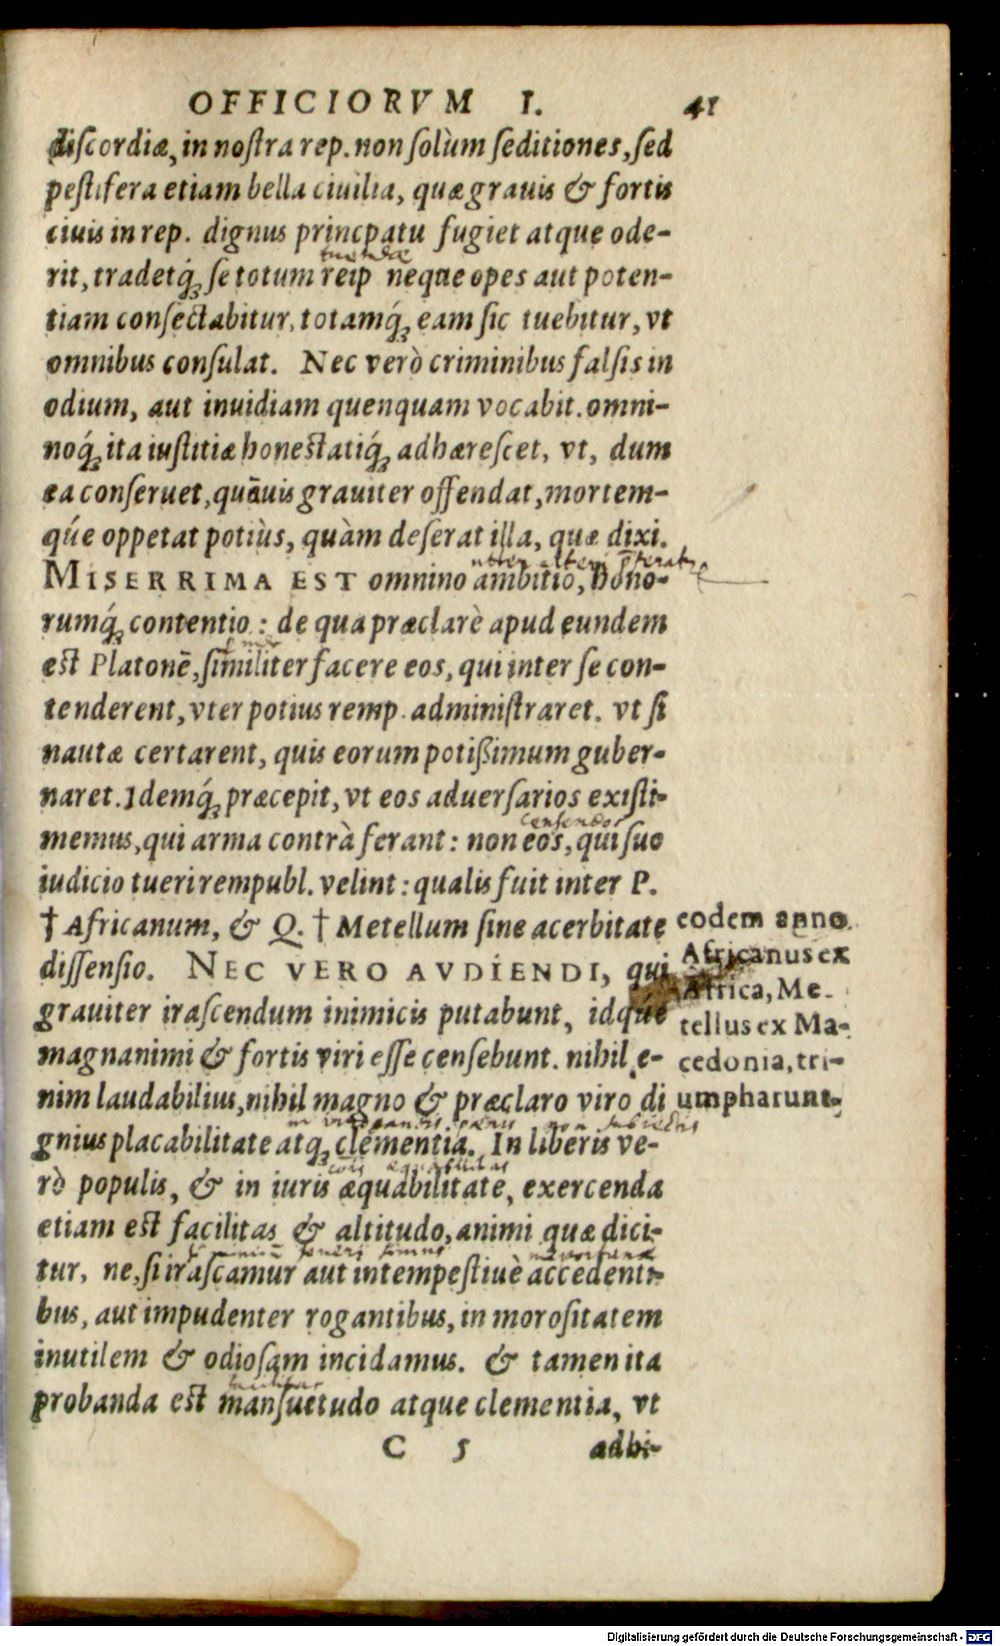 OFFICIORVM I. 41
diſcordiæ, in noſtra rep. non ſolùm ſeditiones, ſed
peſtifera etiam bella ciuilia, quæ grauis & fortis
ciuis in rep. dignus princpatu fugiet atque ode-
tuendæ
rit, tradetq́; ſe totum reip neque opes aut poten-
tiam conſectabitur, totamq́; eam ſic tuebitur, vt
omnibus conſulat. Nec verò criminibus falſis in
odium, aut inuidiam quenquam vocabit. omni-
noq́; ita iuſtitiæ honeſtatiq́; adhæreſcet, vt, dum
ea conſeruet, quāuis grauiter offendat, mortem-
qúe oppetat potiùs, quàm deſerat illa, quæ dixi.
alteri
MISERRIMA EST omnino ambitio, hono-
rumq́; contentio: de qua præclarè apud eundem
eſt Platonē, ſimiliter facere eos, qui inter ſe con-
tenderent, vter potius remp. adminiſtraret. vt ſi
nautæ certarent, quis eorum potißimum guber-
naret. Idemq́; præcepit, vt eos aduerſarios exiſti-
censendos
memus, qui arma contrà ferant: non eos, qui ſuo
iudicio tueri rempubl. velint: qualis fuit inter P.
† Africanum, & Q. † Metellum ſine acerbitate
diſſenſio. NEC VERO AVDIENDI, qui
grauiter iraſcendum inimicis putabunt, idqúe
magnanimi & fortis viri eſſe cenſebunt. nihil e-
nim laudabilius, nihil magno & præclaro viro di
gnius placabilitate atq; clementia. In liberis ve-
æquabilitas
rò populis, & in iuris æquabilitate, exercenda
etiam eſt facilitas & altitudo, animi quæ dici-
tur, ne, ſi iraſcamur aut intempeſtiuè accedenti-
bus, aut impudenter rogantibus, in moroſitatem
inutilem & odioſam incidamus. & tamen ita
probanda eſt manſuetudo atque clementia, vt
C 5 adhi-
eodem anno
Africanus ex
Africa, Me-
tellus ex Ma-
cedonia, tri-
umpharunt.
Digitalisierung gefördert durch die Deutsche Forschungsgemeinschaft - DFG